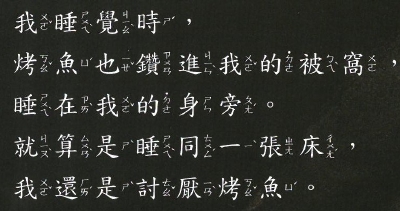 我睡覺時，
烤魚也鑽進我的被窩，
睡在我的身旁。
就算是睡同一張床，
我還是討厭烤魚。